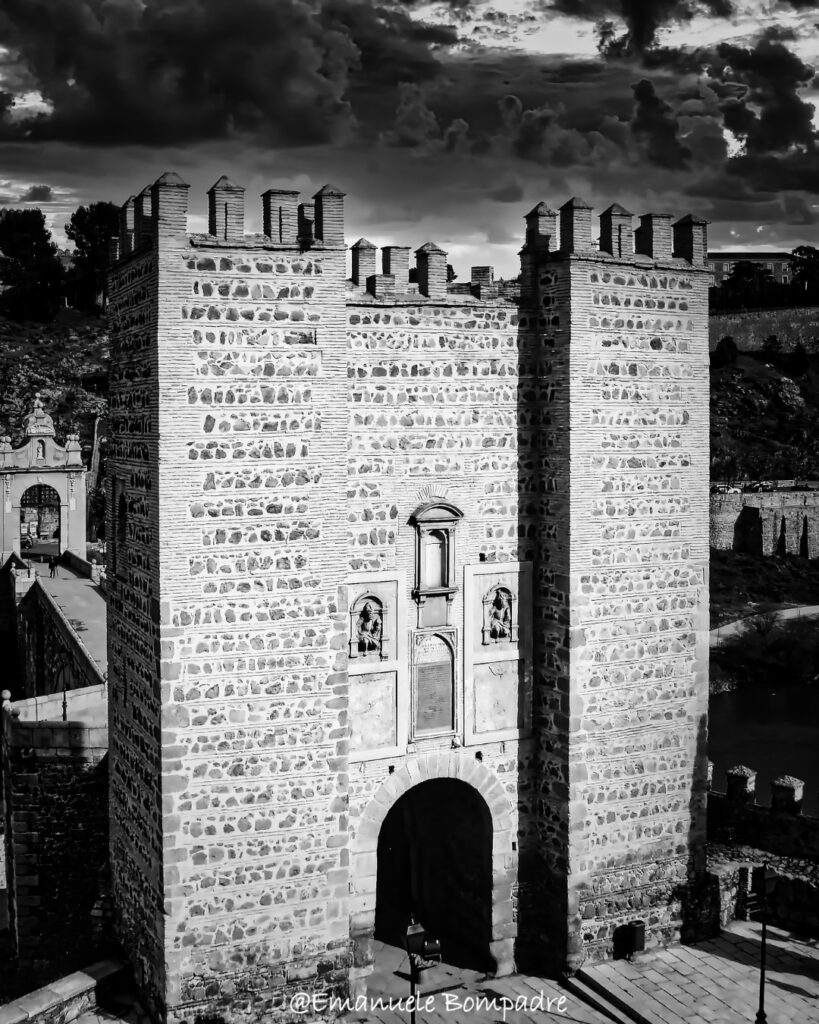 @Emanuele Bompadre